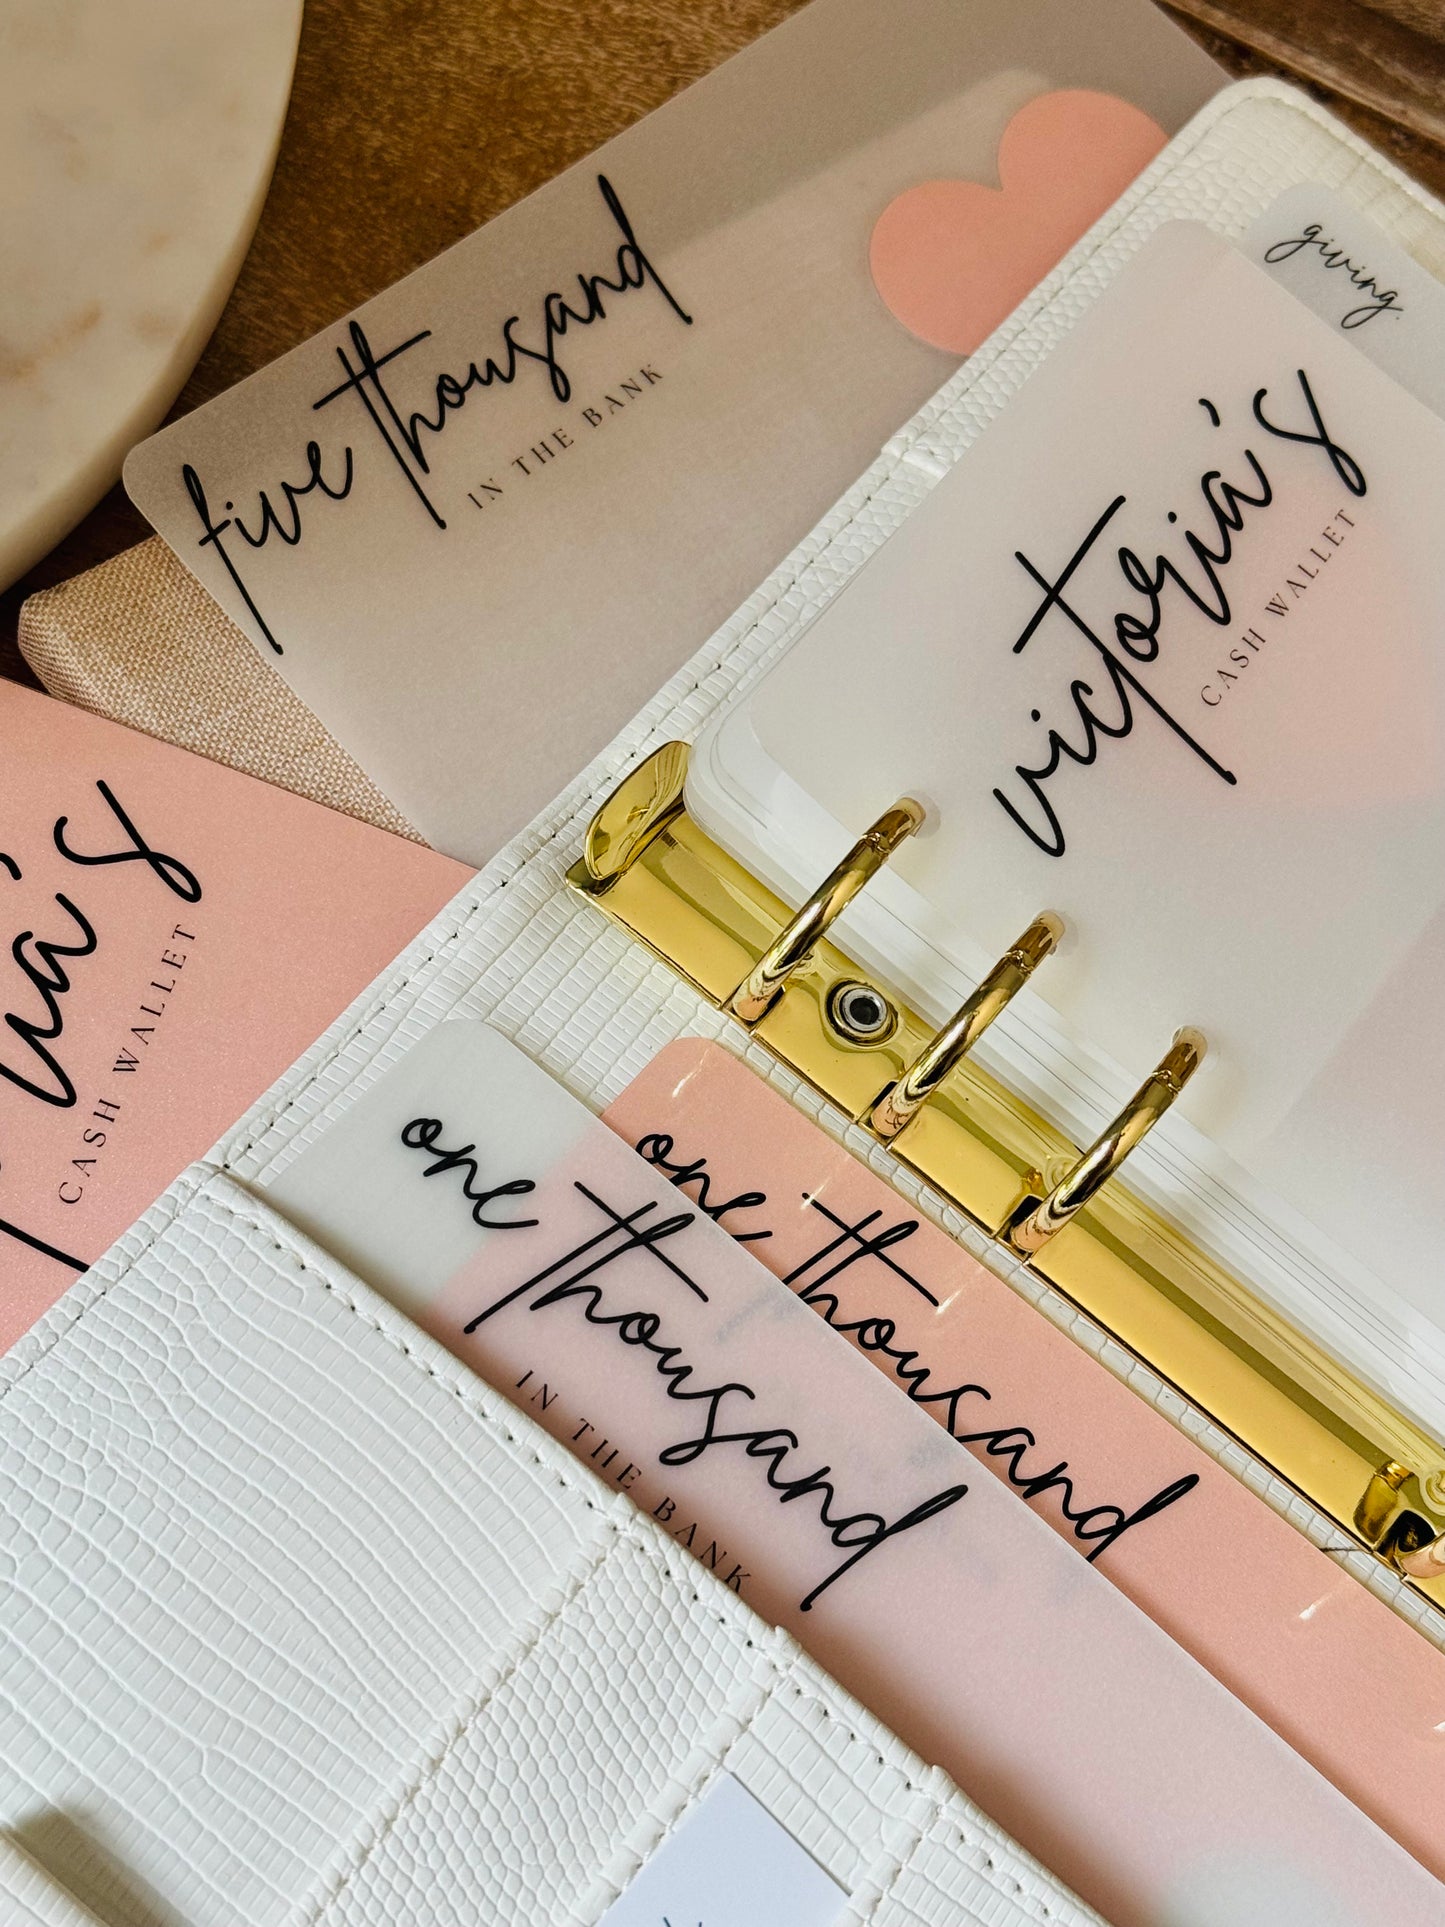 five thousand
IN THE BANK
giving.
victoria's
CASH WALLET
ia's
CASH WALLET
one thousand
IN THE BANK
one thousand